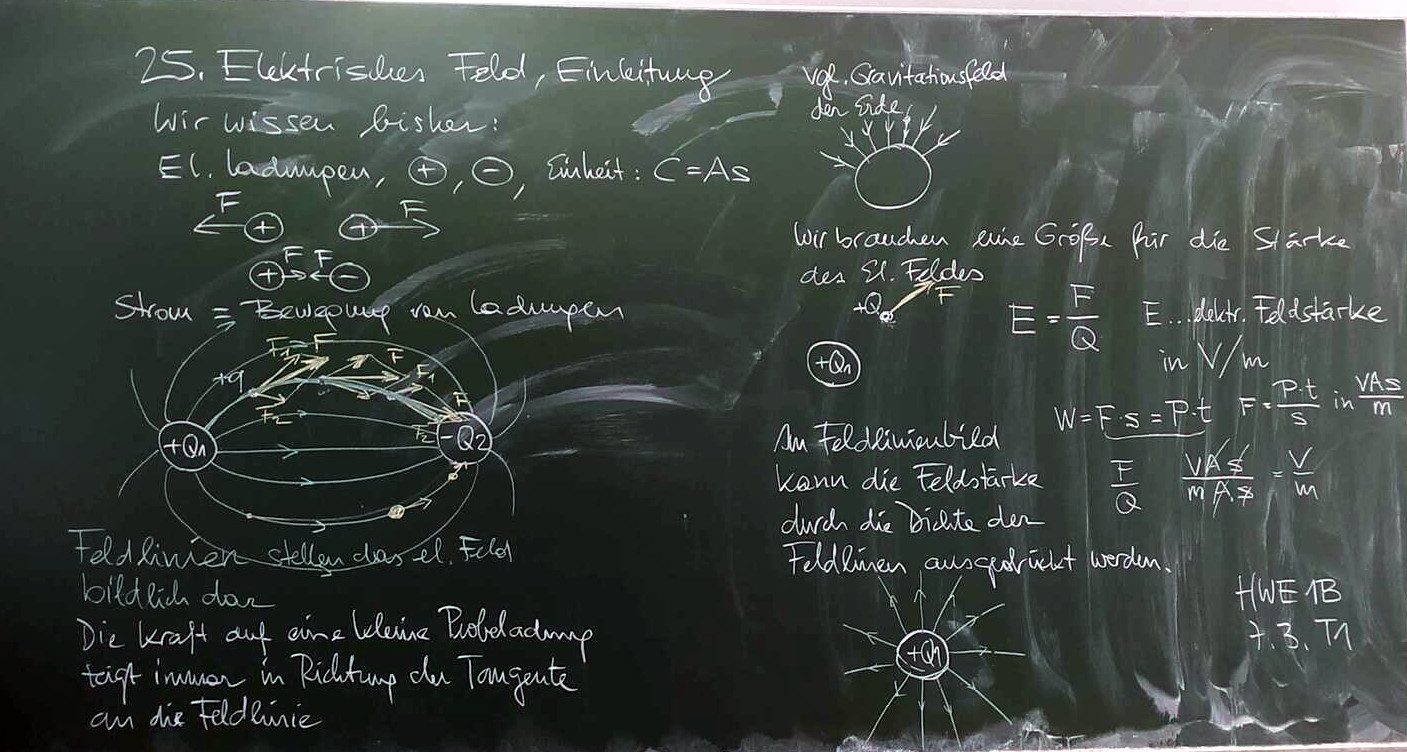 25. Elektrisches Feld, Einleitung
Wir wissen bisher:
El. Ladungen, +, -, Einheit: C=As
F + + F
+ F F -
Strom = Bewegung von Ladungen
F1 F F F1 F
+q
F2 F2
+Q1 -Q2
Feldlinien stellen das el. Feld
bildlich dar
Die Kraft auf eine kleine Probeladung
zeigt immer in Richtung der Tangente
an die Feldlinie
vgl. Gravitationsfeld
der Erde
Wir brauchen eine Größe für die Stärke
des El. Feldes
+Q F
+Q1
E = F/Q E...elektr. Feldstärke
in V/m
W=F·s=P·t F=P·t/s in VAs/m
F/Q VAs/mAs = V/m
Im Feldlinienbild
kann die Feldstärke
durch die Dichte der
Feldlinien ausgedrückt werden.
+Q1
HWE 1B
7.3. T1